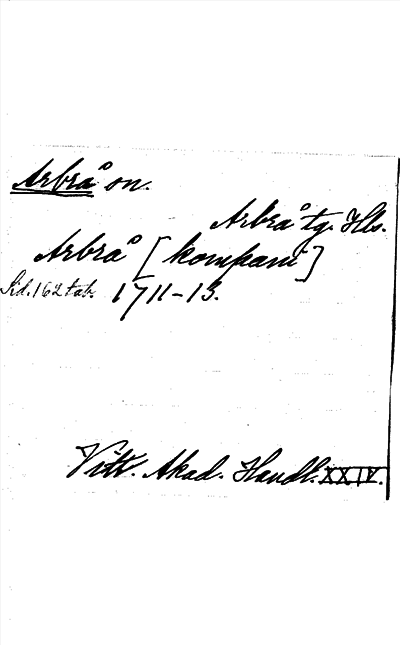 Arbrå sn.
Arbrå tg. Hls.
Arbrå [kompani]
Sid. 162 tab. 1711-13.
Vitt. Akad. Handl. XXIV.